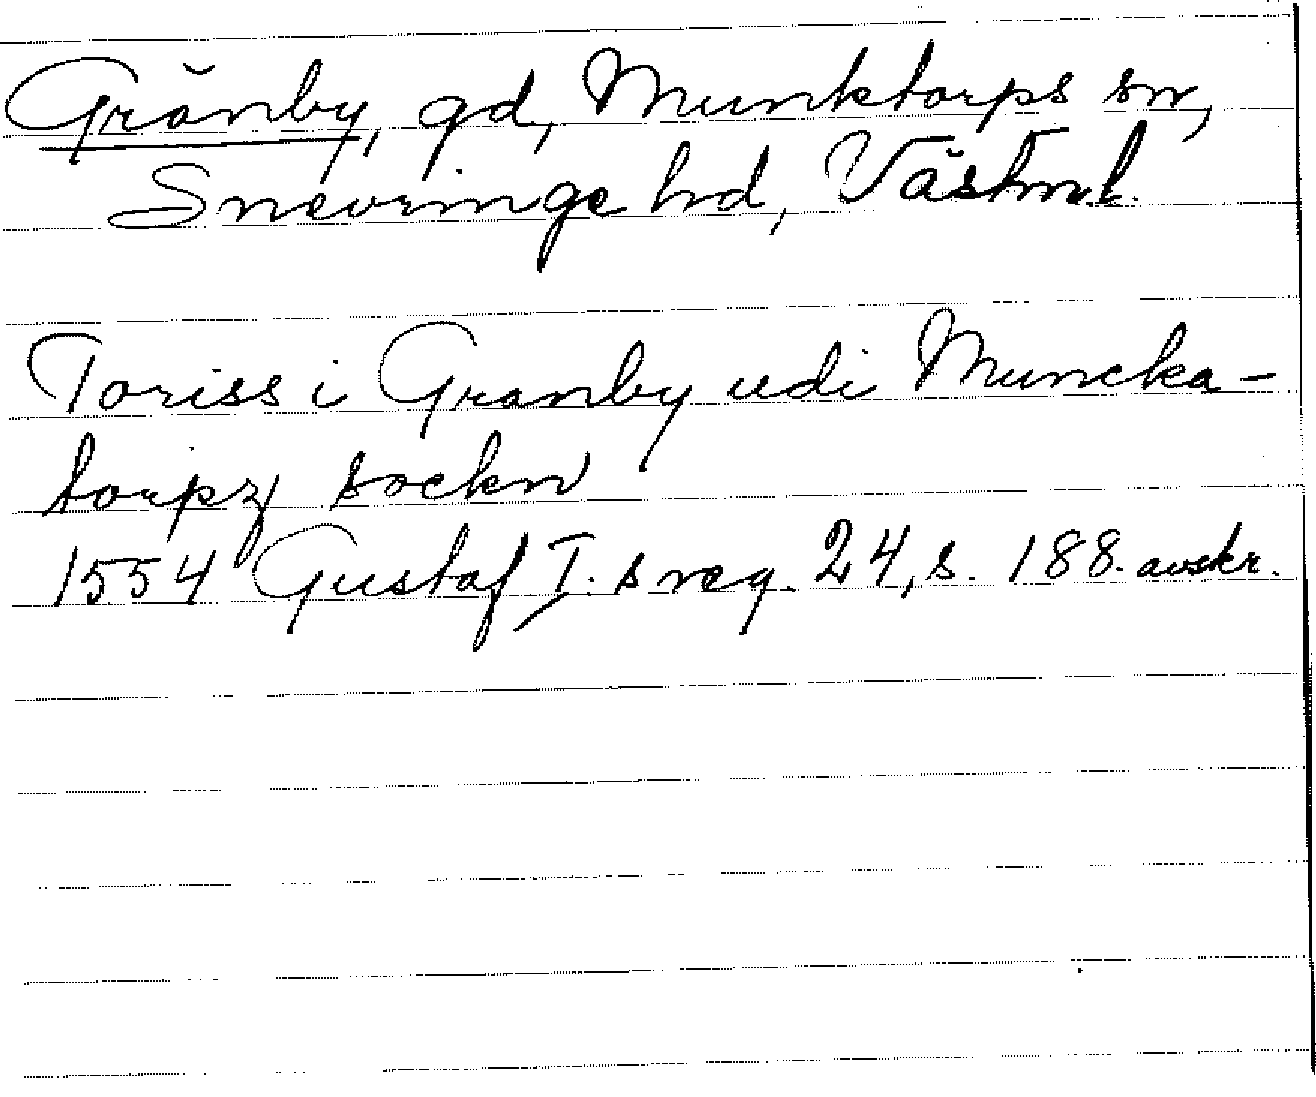 Gränby, gd, Munktorps sn,
Snevringe hd, Västml.
Toriss i Granby udi Muncka-
torpz sockn
1554 Gustaf I:s reg. 24, s. 188. avskr.